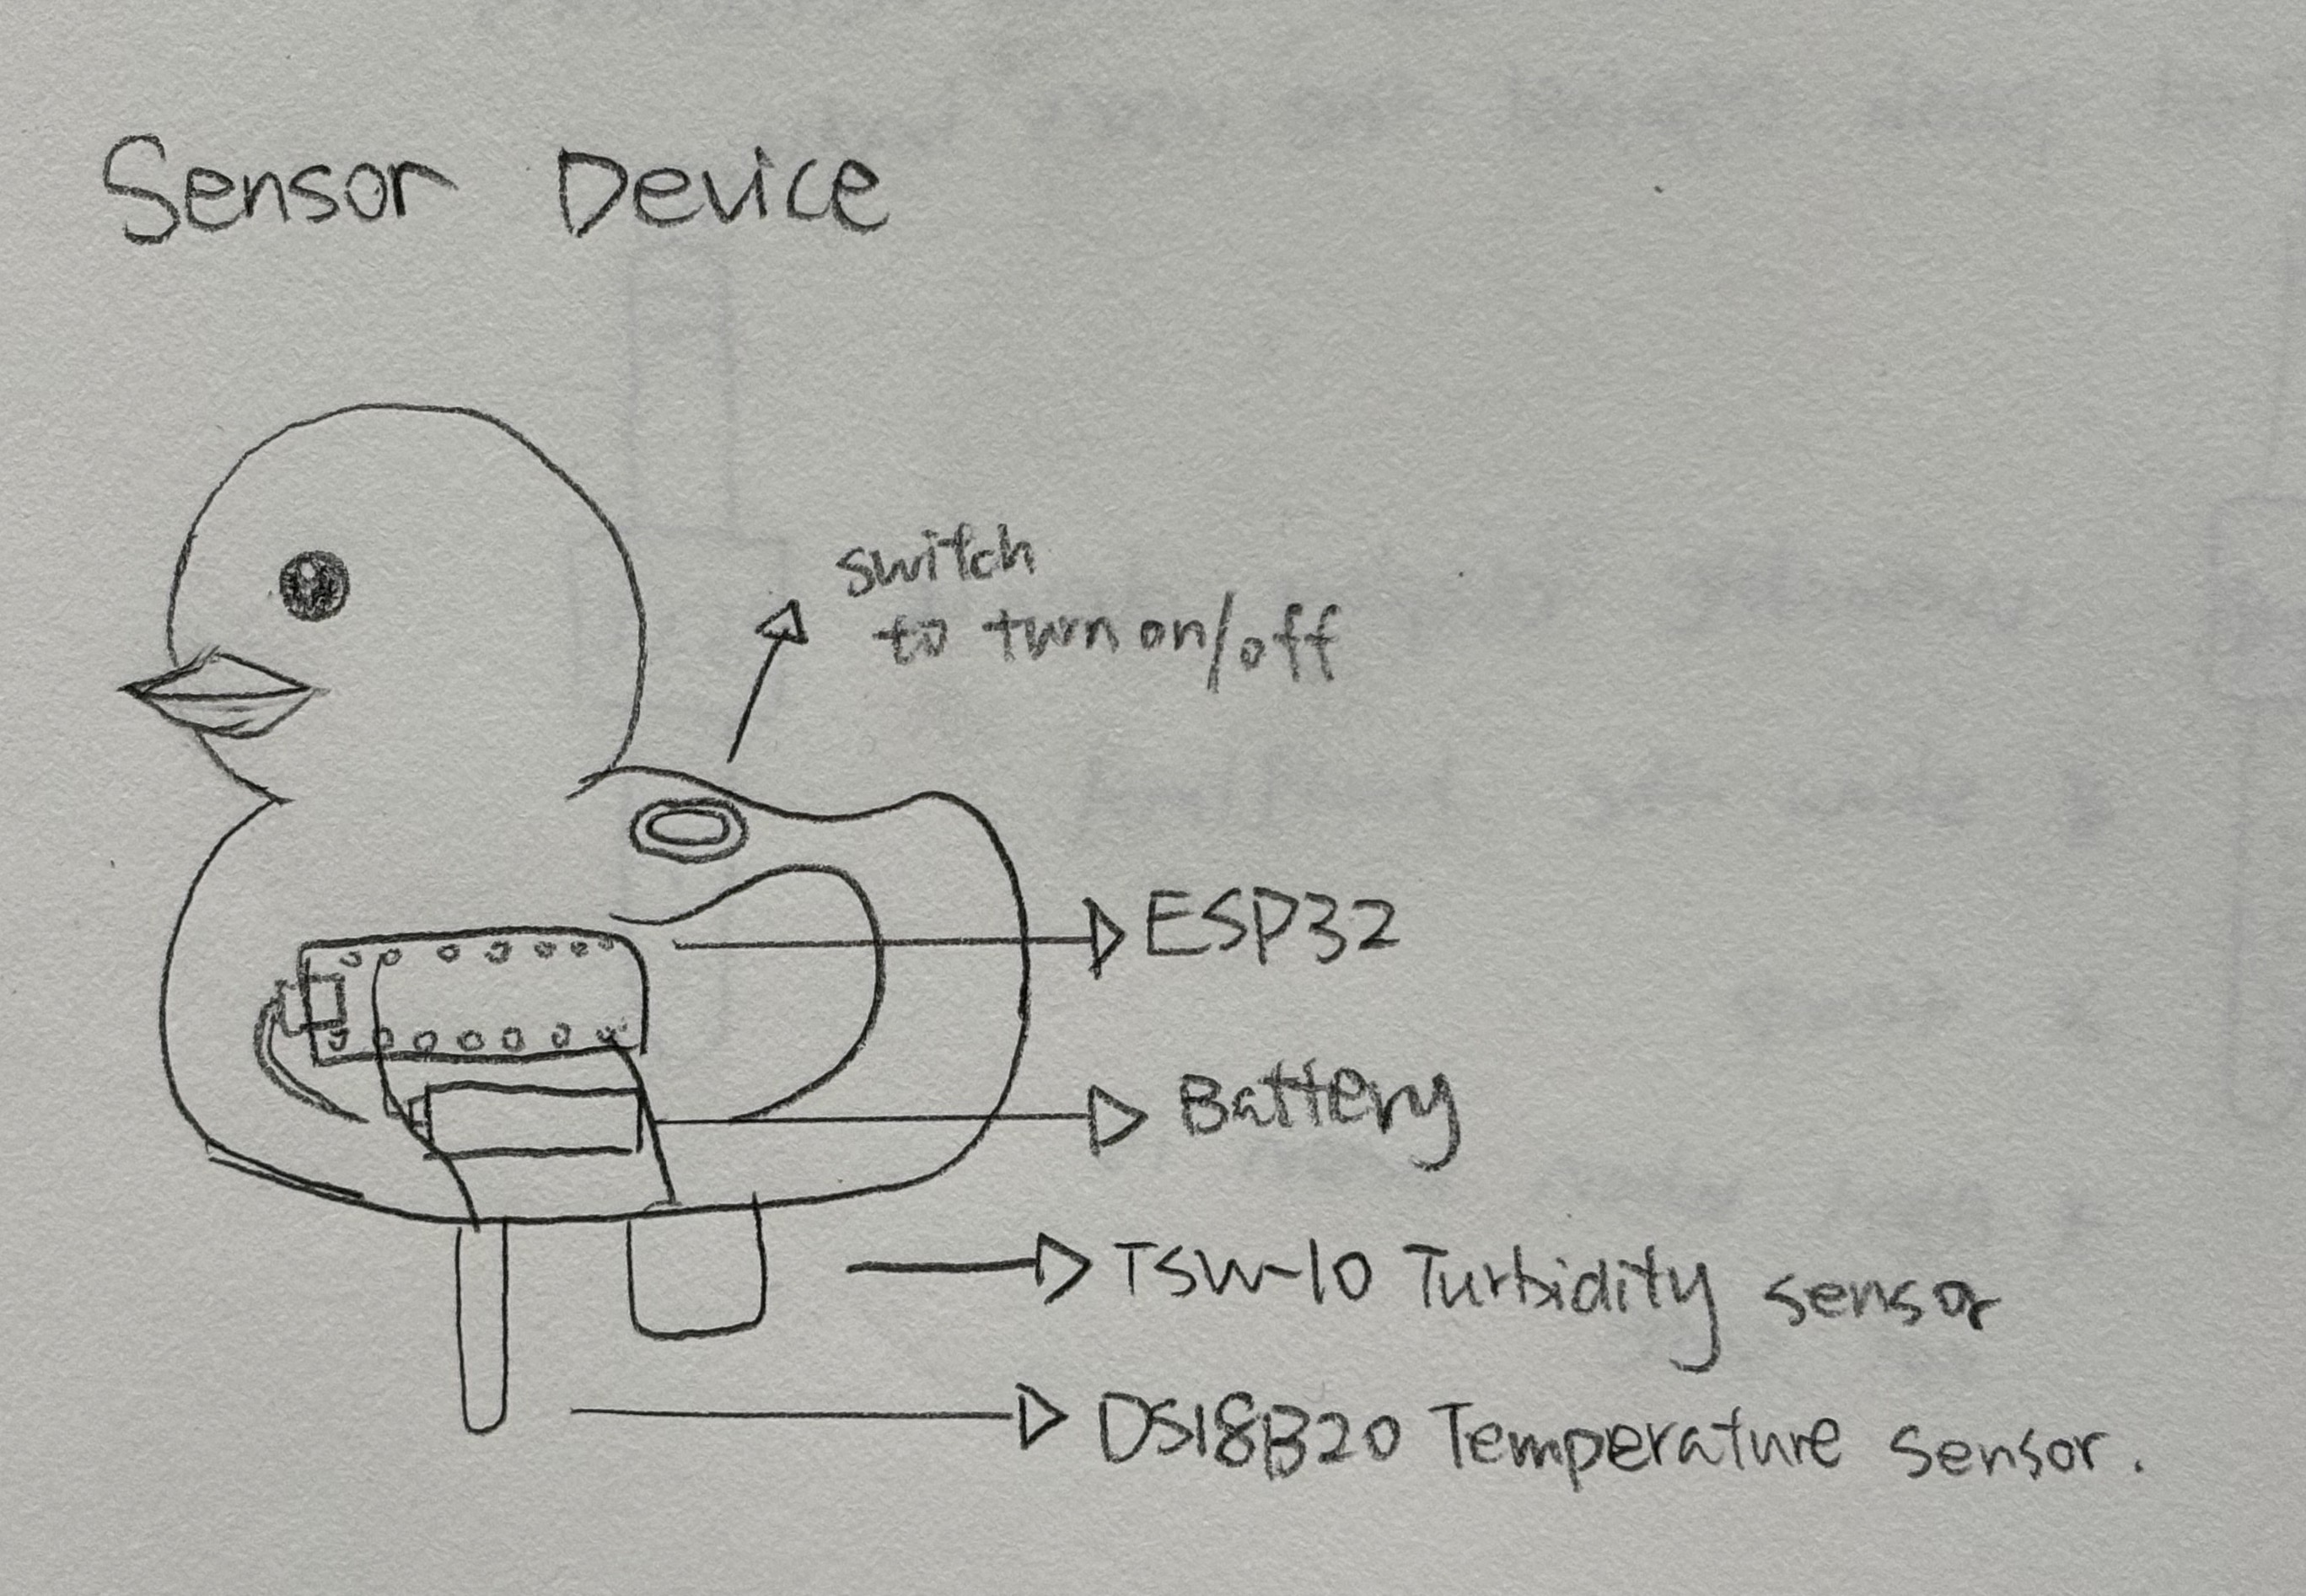 Sensor Device
switch
to turn on/off
ESP32
Battery
TSW-10 Turbidity sensor
DS18B20 Temperature sensor.